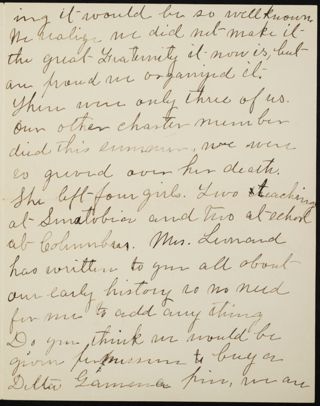 ing it would be so well known
We realize we did not make it
the great Fraternity it now is, but
are proud we organized it.
There were only three of us.
Our other charter member
died this summer, we were
so grieved over her death.
She left four girls. Two teaching
at Senatobia and two at school
at Columbus. Mrs. Leonard
has written to you all about
our early history so no need
for me to add any thing
Do you think we would be
given permission to buy a
Delta Gamma pin, we are